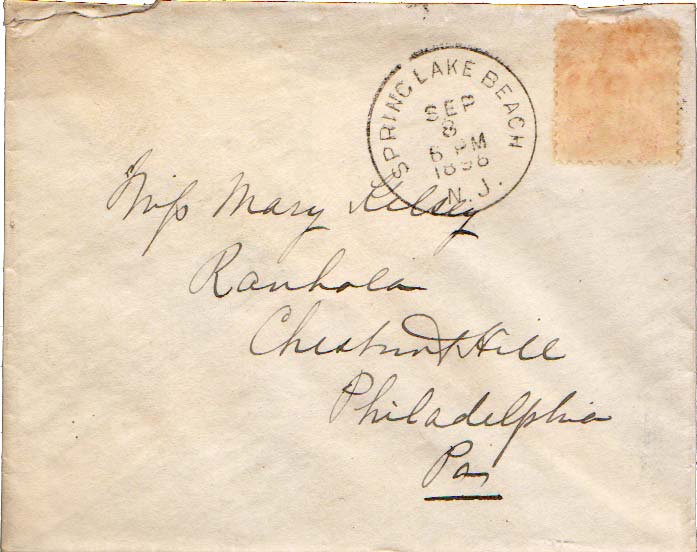 SPRING LAKE BEACH
SEP
8
6 PM
1896
N.J.
Miss Mary Kelsey
Ranhola
Chestnut Hill
Philadelphia
Pa